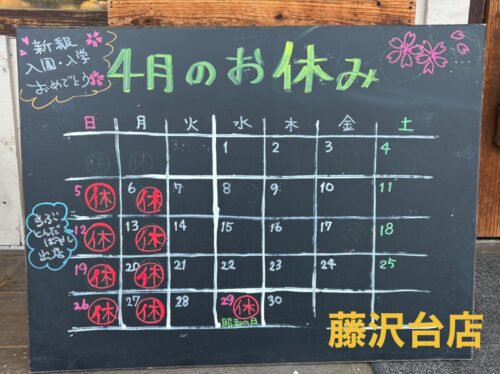 新級
入園・入学
おめでとう
4月のお休み
日 月 火 水 木 金 土
1 2 3 4
5 休 6 休 7 8 9 10 11
12 休 13 休 14 15 16 17 18
19 休 20 休 21 22 23 24 25
26 休 27 休 28 29 休 30
昭和の日
とんだ
ばやし
出店
藤沢台店